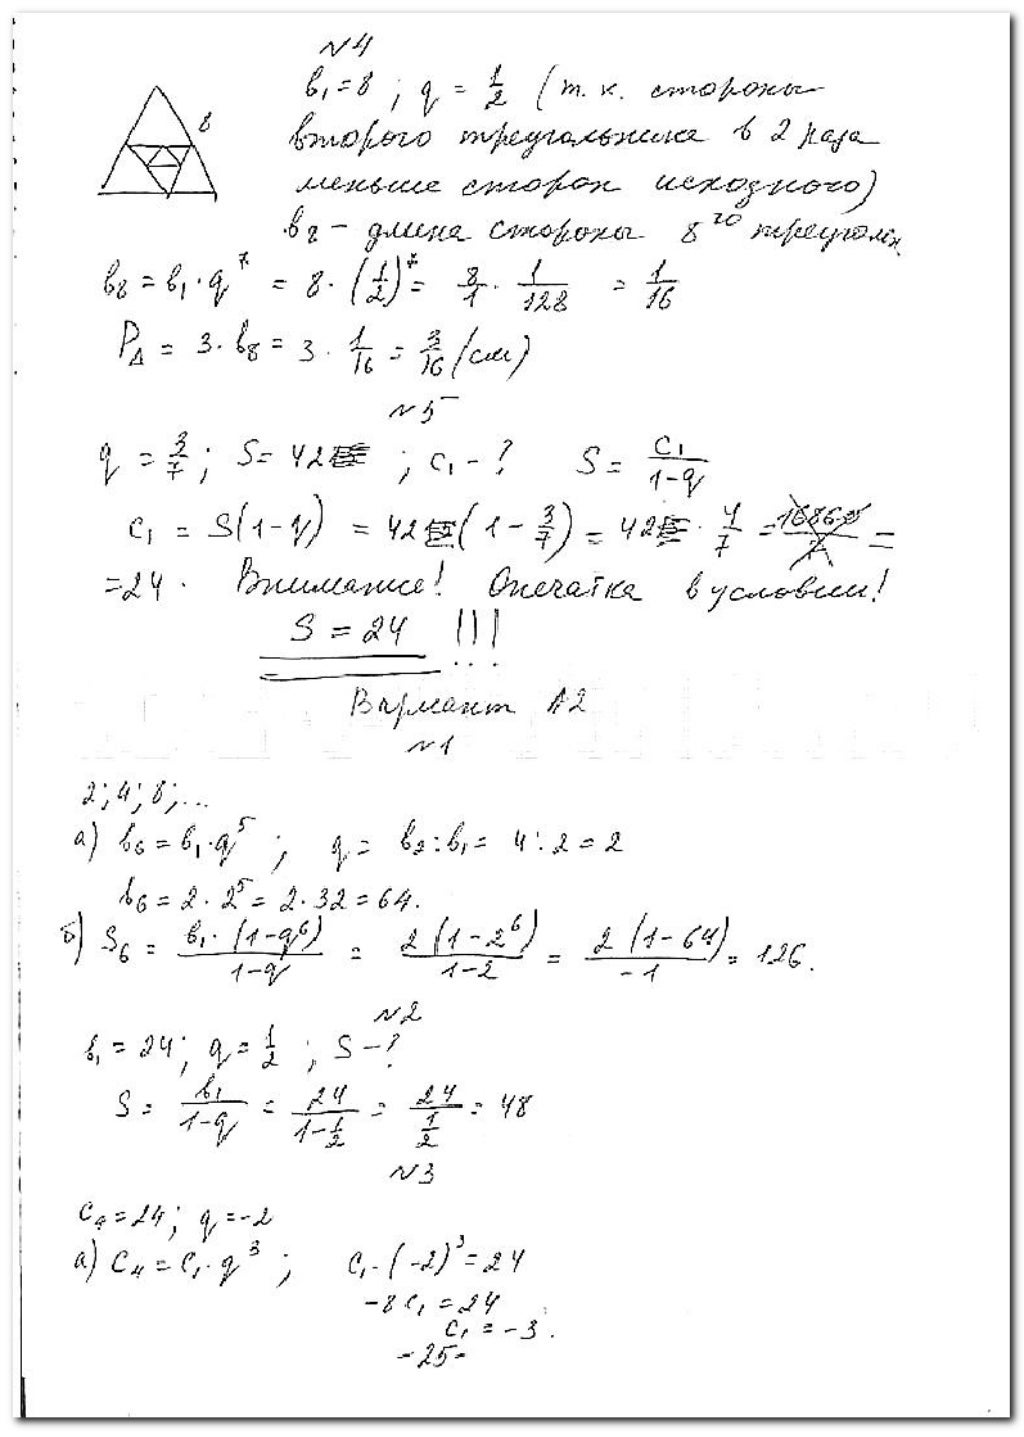 №4
8
b₁=8 ; q = 1/2 (т.к. стороны
второго треугольника в 2 раза
меньше сторон исходного)
b₈ – длина стороны 8го треугольн.
b₈ = b₁·q⁷ = 8·(1/2)⁷ = 8/1 · 1/128 = 1/16
P△ = 3·b₈ = 3·1/16 = 3/16 (см)
№5
q = 3/7 ; S = 42 ; c₁ – ? S = c₁/(1-q)
c₁ = S(1-q) = 42 (1 - 3/7) = 42 · 4/7 = =
=24. Внимание! Опечатка в условии!
S = 24 !!!
Вариант А2
№1
2; 4; 8; ...
а) b₆ = b₁·q⁵ ; q = b₂:b₁ = 4:2 = 2
b₆ = 2·2⁵ = 2·32 = 64.
б) S₆ = b₁·(1-q⁶)/(1-q) = 2(1-2⁶)/(1-2) = 2(1-64)/(-1) = 126.
№2
b₁ = 24; q = 1/2 ; S – ?
S = b₁/(1-q) = 24/(1-1/2) = 24/(1/2) = 48
№3
c₄ = 24; q = -2
а) c₄ = c₁·q³ ; c₁·(-2)³ = 24
-8c₁ = 24
c₁ = -3.
-25-